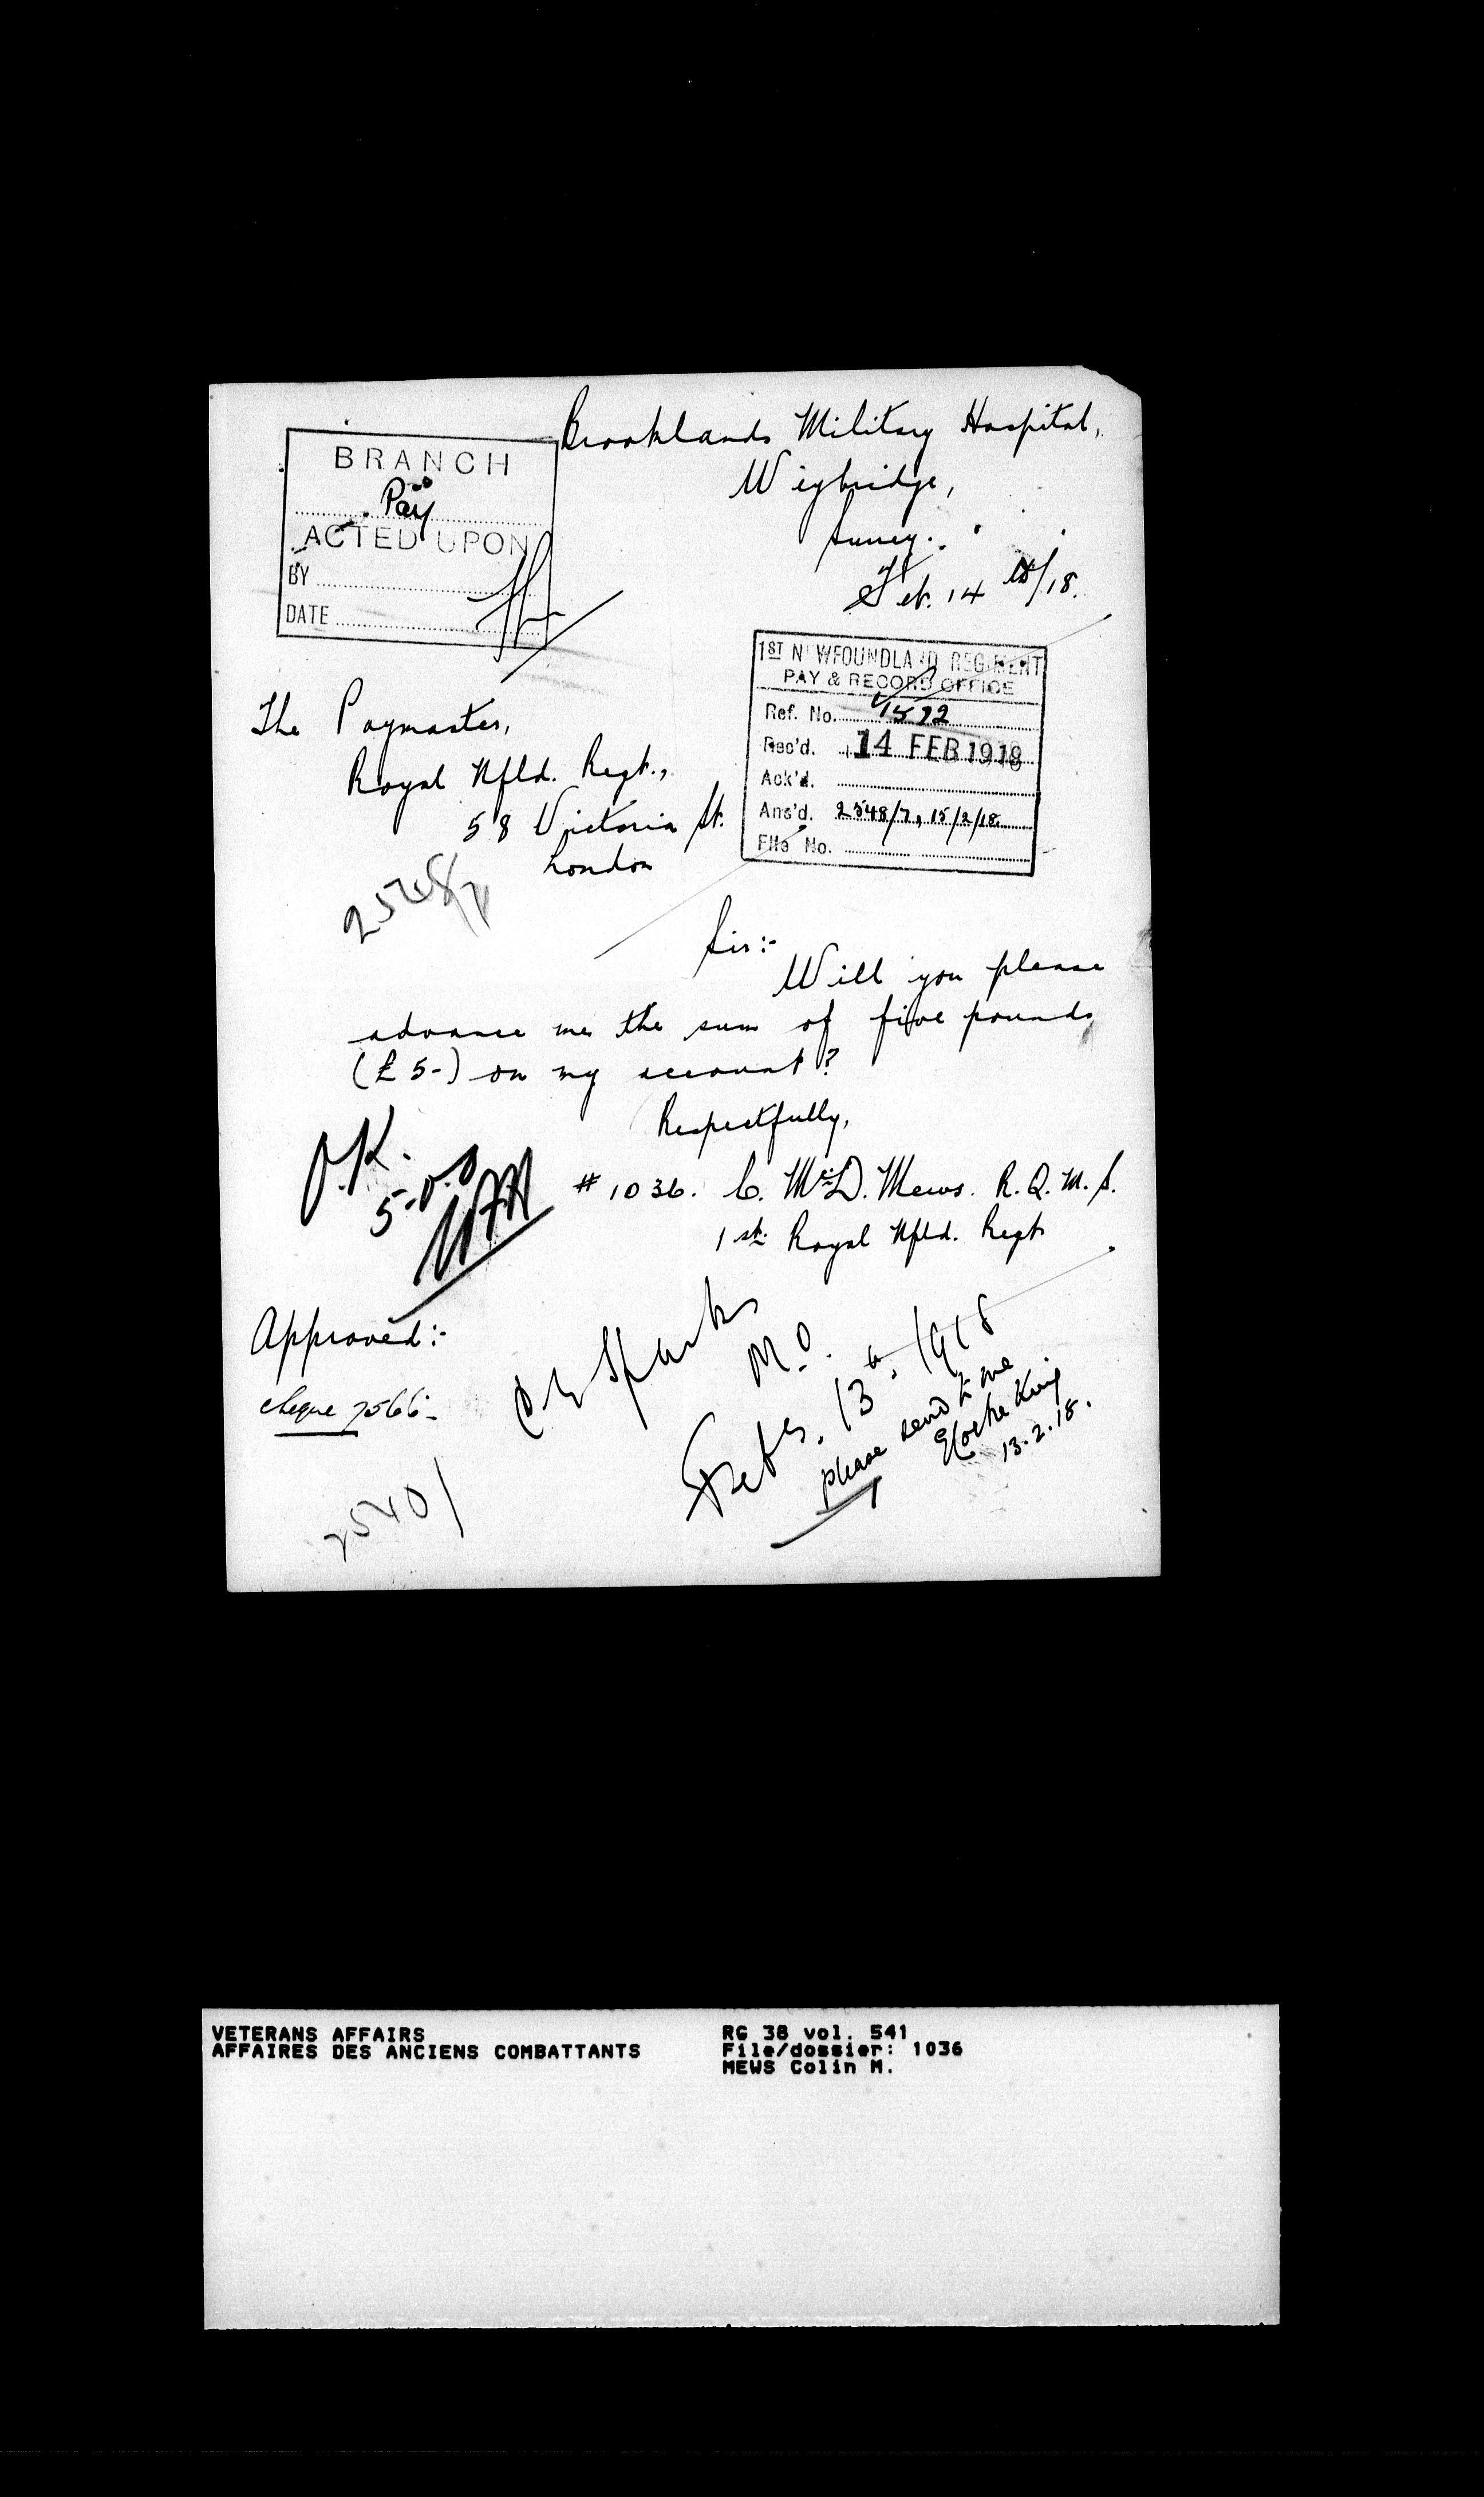 Brooklands Military Hospital,
Weybridge,
Surrey.
Feb. 14th/18.
BRANCH
Pay
ACTED UPON
BY
DATE
1ST NEWFOUNDLAND REGIMENT
PAY & RECORD OFFICE
Ref. No. 1592
Rec'd. 14 FEB 1918
Ack'd.
Ans'd. 2548/7, 15/2/18.
File No.
The Paymaster,
Royal Nfld. Regt.,
58 Victoria St.
London
2548/7
Sir:-
Will you please
advance me the sum of five pounds
(£5-) on my account?
Respectfully,
O.K.
5.0.0
#1036. C. McD. Mews. R.Q.M.S.
1st. Royal Nfld. Regt.
Approved:-
cheque 7566-
Sparks
M.O.
Feby. 13th, 1918
please send to me
13.2.18.
VETERANS AFFAIRS
AFFAIRES DES ANCIENS COMBATTANTS
RG 38 vol. 541
File/dossier: 1036
MEWS Colin M.